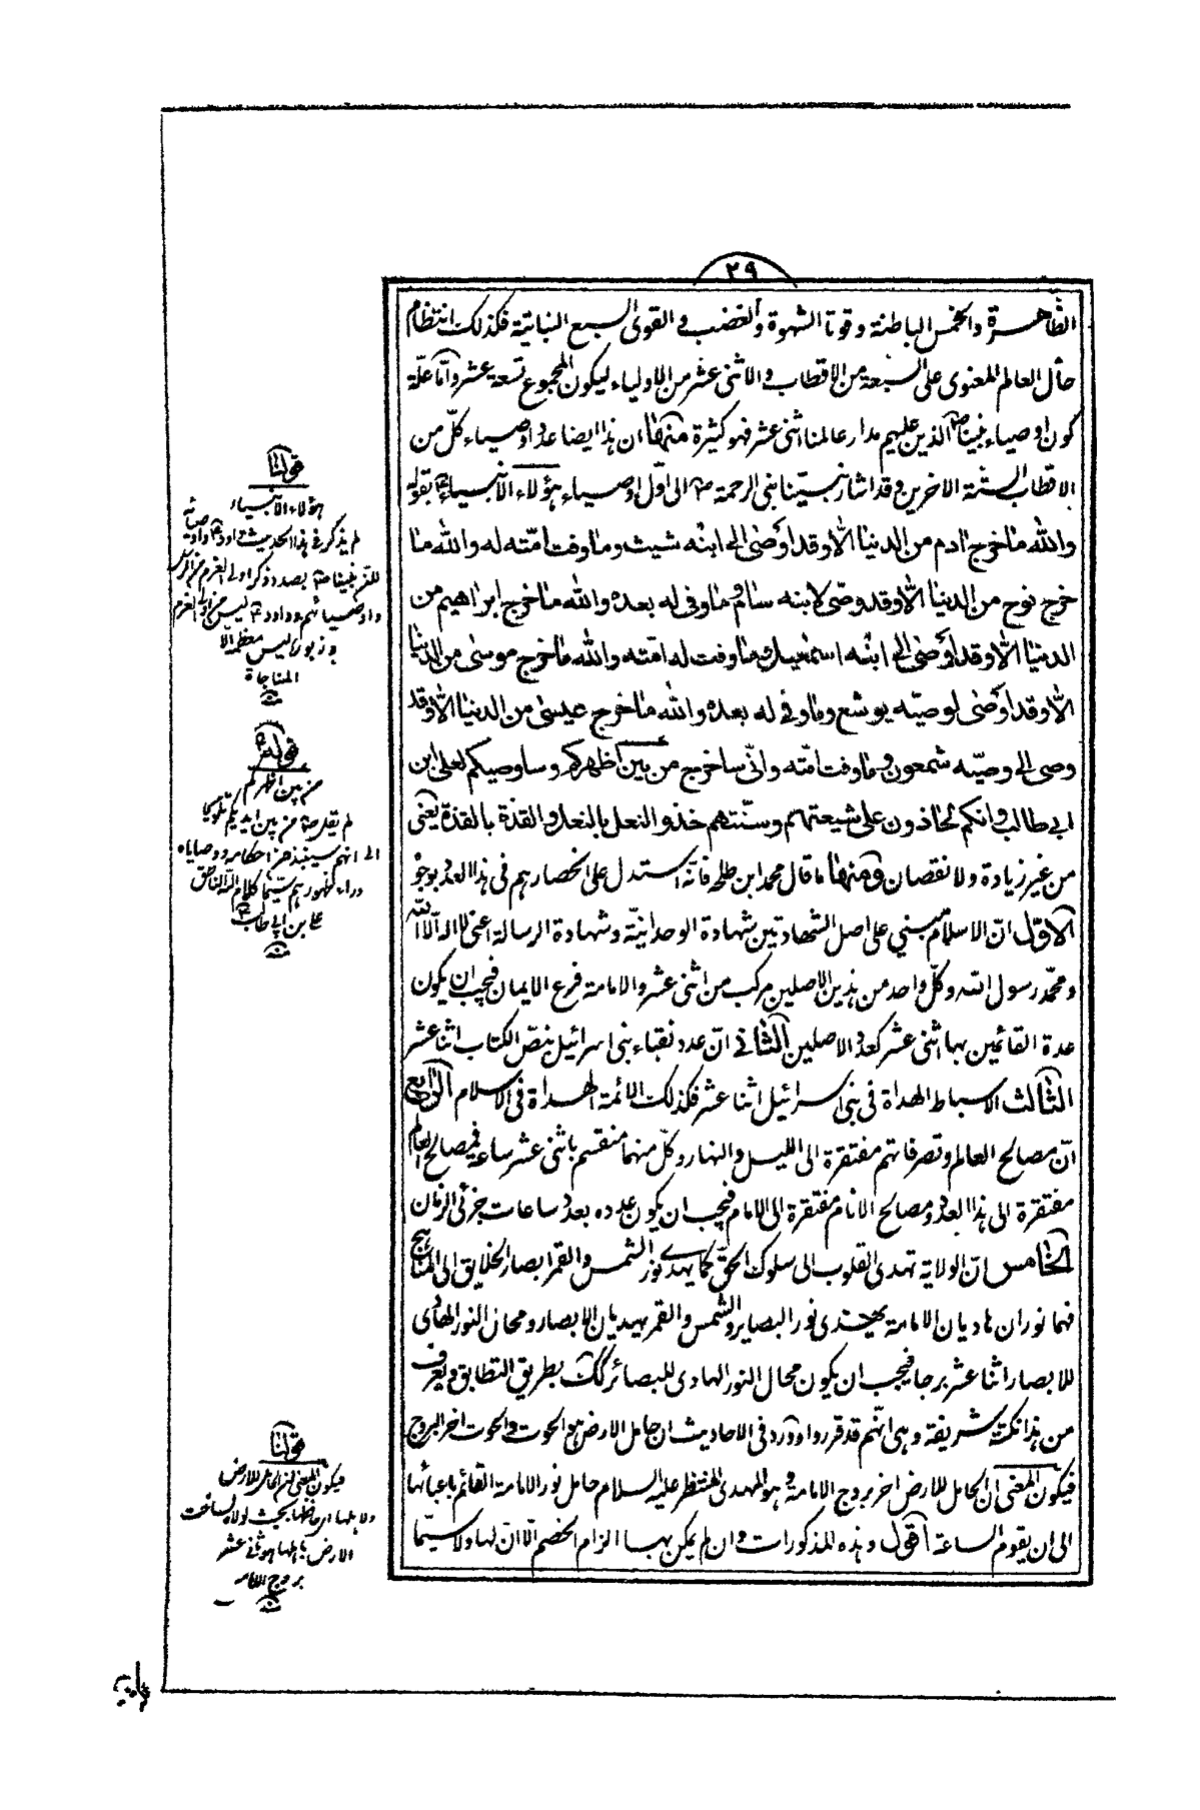 ٢٩
الظاهرة والخمس الباطنة وقوتا الشهوة والغضب والقوى السبع النباتية فكذلك انتظام
حال العالم المعنوى على السبعة من الاقطاب والاثنى عشر من الاولياء ليكون المجموع تسعة عشر وامّا علّة
كون اوصياء نبينا ص الذين عليهم مدار عالمنا اثنى عشر فهو كثيرة منها ان هذا ايضا عدد اوصياء كلّ من
الاقطاب الستة الاخرين وقد اشار نبيّنا نبى الرحمة ص الى اوّل اوصياء هؤلاء الانبياء بقوله
والله ما خرج ادم من الدنيا الا وقد اوصى الى ابنه شيث وما وفت امّته له والله ما
خرج نوح من الدنيا الا وقد وصّى لابنه سام وما وفى له بعده والله ما خرج ابراهيم من
الدنيا الا وقد اوصى الى ابنه اسمعيل وما وفت له امّته والله ما خرج موسى من الدنيا
الا وقد اوصى لوصيّه يوشع وما وفى له بعده والله ما خرج عيسى من الدنيا الا وقد
وصى الى وصيّه شمعون وما وفت امّته وانّى ساخرج من بين اظهركم وساوصيكم لعلى ابن
ابى طالب وانكم لحاذون على شيعتهم وسنّتهم حذو النعل بالنعل والقذة بالقذة يعنى
من غير زيادة ولا نقصان ومنها ما قال محمد ابن طلحة فانّه استدل على انحصارهم فى هذا العدد بوجوه
الاوّل انّ الاسلام مبني على اصل الشهادتين شهادة الوحدانيّة وشهادة الرسالة اعنى لا اله الّا الله
ومحمّد رسول الله وكلّ واحد من هذين الاصلين مركب من اثنى عشر والامامة فرع الايمان فيجب ان يكون
عدة القائمين بها اثنى عشر كعدد الاصلين الثانى انّ عدد نقباء بنى اسرائيل بنصّ الكتاب اثنا عشر
الثالث الاسباط الهداة فى بنى اسرائيل اثنا عشر فكذلك الائمة الهداة فى الاسلام الرابع
انّ مصالح العالم وتصرفاتهم مفتقرة الى الليل والنهار وكلّ منهما منقسم باثنى عشر ساعة فمصالح العالم
مفتقرة الى هذا العدد ومصالح الانام مفتقرة الى الامام فيجب ان يكون عدده بعدد ساعات جزئى الزمان
الخامس انّ الولاية تهدى القلوب الى سلوك الحقّ كما يهدى نور الشمس والقمر ابصار الخلايق الى المناهج
فهما نوران هاديان الامامة تهدى نور البصاير والشمس والقمر يهديان الابصار ومحال النور الهادى
للابصار اثنا عشر برجا فيجب ان يكون محال النور الهادى للبصائر كك بطريق التطابق ويعرف
من هذا نكتة شريفة وهى انّهم قد قرروا وورد فى الاحاديث ان حامل الارض هو الحوت والحوت اخر البروج
فيكون المعنى ان الحامل للارض اخر بروج الامامة وهو المهدى المنتظر عليه السلام حامل نور الامامة القائم باعبائها
الى ان يقوم الساعة اقول وهذه المذكورات وان لم يكن بها الزام الخصم الّا انّ لها ولا سيّما
قولنا
هؤلاء الانبياء
لم يذكر فى هذا الحديث داود واوصيائه
بصدد ذكر اولى العزم من الرسل
واوصيائهم وداود ليس من اولى العزم
وزبوره ليس معظمه الّا
المناجاة
قوله
من بين اظهركم
لم يقل من بين ايديكم تلويحا
الى انهم سينبذون احكامه ووصاياه
وراء ظهورهم سيّما كلام الله الناطق
على بن ابى طالب
قولنا
فيكون المعنى ان الحامل للارض
بحيث لولاه لساخت
الارض باهلها هو ثانى عشر
بروج الامامة